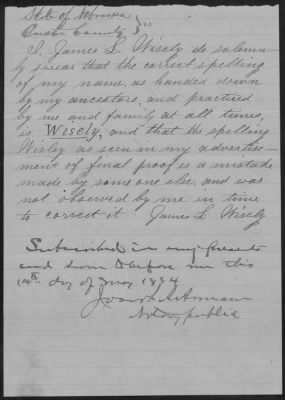 State of Nebraska
Custer County } ss
I, James L. Wisely do solemn-
ly swear that the correct spelling
of my name, as handed down
by my ancestors, and practiced
by me and family at all times,
is Wisely, and that the spelling
Wisley as seen in my advertise-
ment of final proof is a mistake
made by some one else and was
not observed by me in time
to correct it James L. Wisely
Subscribed in my presents
and sworn to before me this
14th day of May 1894
Notary public